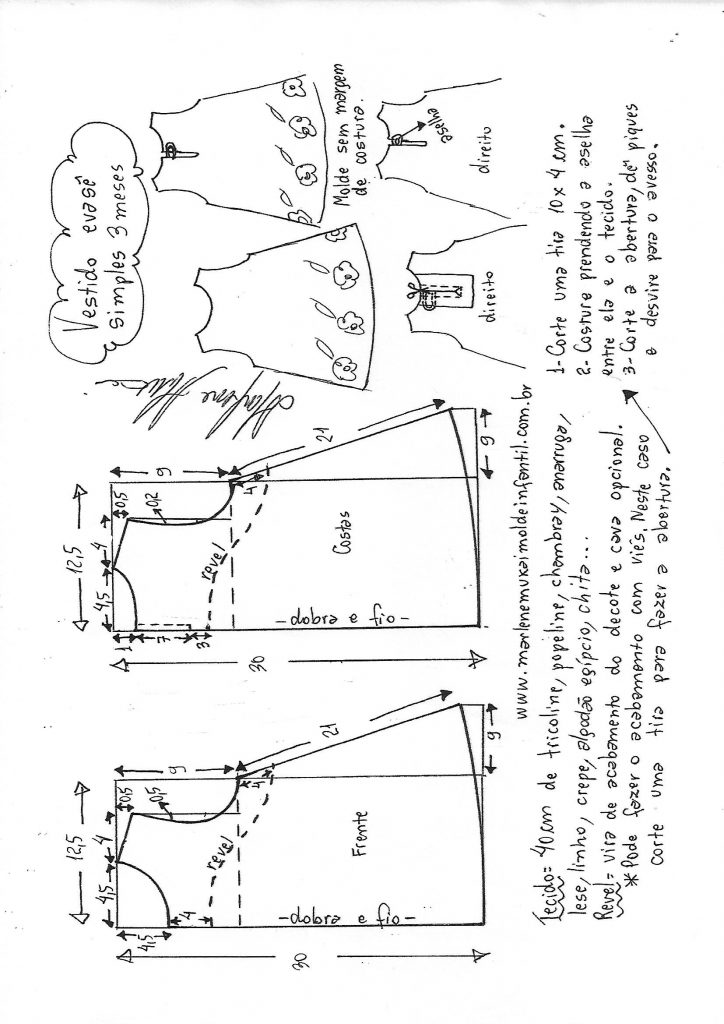 Vestido evasê
simples 3 meses
Molde sem margem
de costura.
aselha
direito
direito
12,5
4,5
4
0,5
9
0,5
4,5
4
revel
4
21
30
-dobra e fio-
Frente
9
12,5
4,5
4
0,5
9
0,2
1
7
3
revel
4
21
30
-dobra e fio-
Costas
9
www.marlenemukaimoldeinfantil.com.br
Tecido= 40cm de tricoline, popeline, chambray, anarruga,
lese, linho, crepe, algodão egípcio, chita...
Revel= vira de acabamento do decote e cava opcional.
*Pode fazer o acabamento com viés. Neste caso
corte uma tira para fazer a abertura.
1-Corte uma tira 10x4cm.
2-Costure prendendo a aselha
entre ela e o tecido.
3-Corte a abertura, dê piques
e desvire para o avesso.